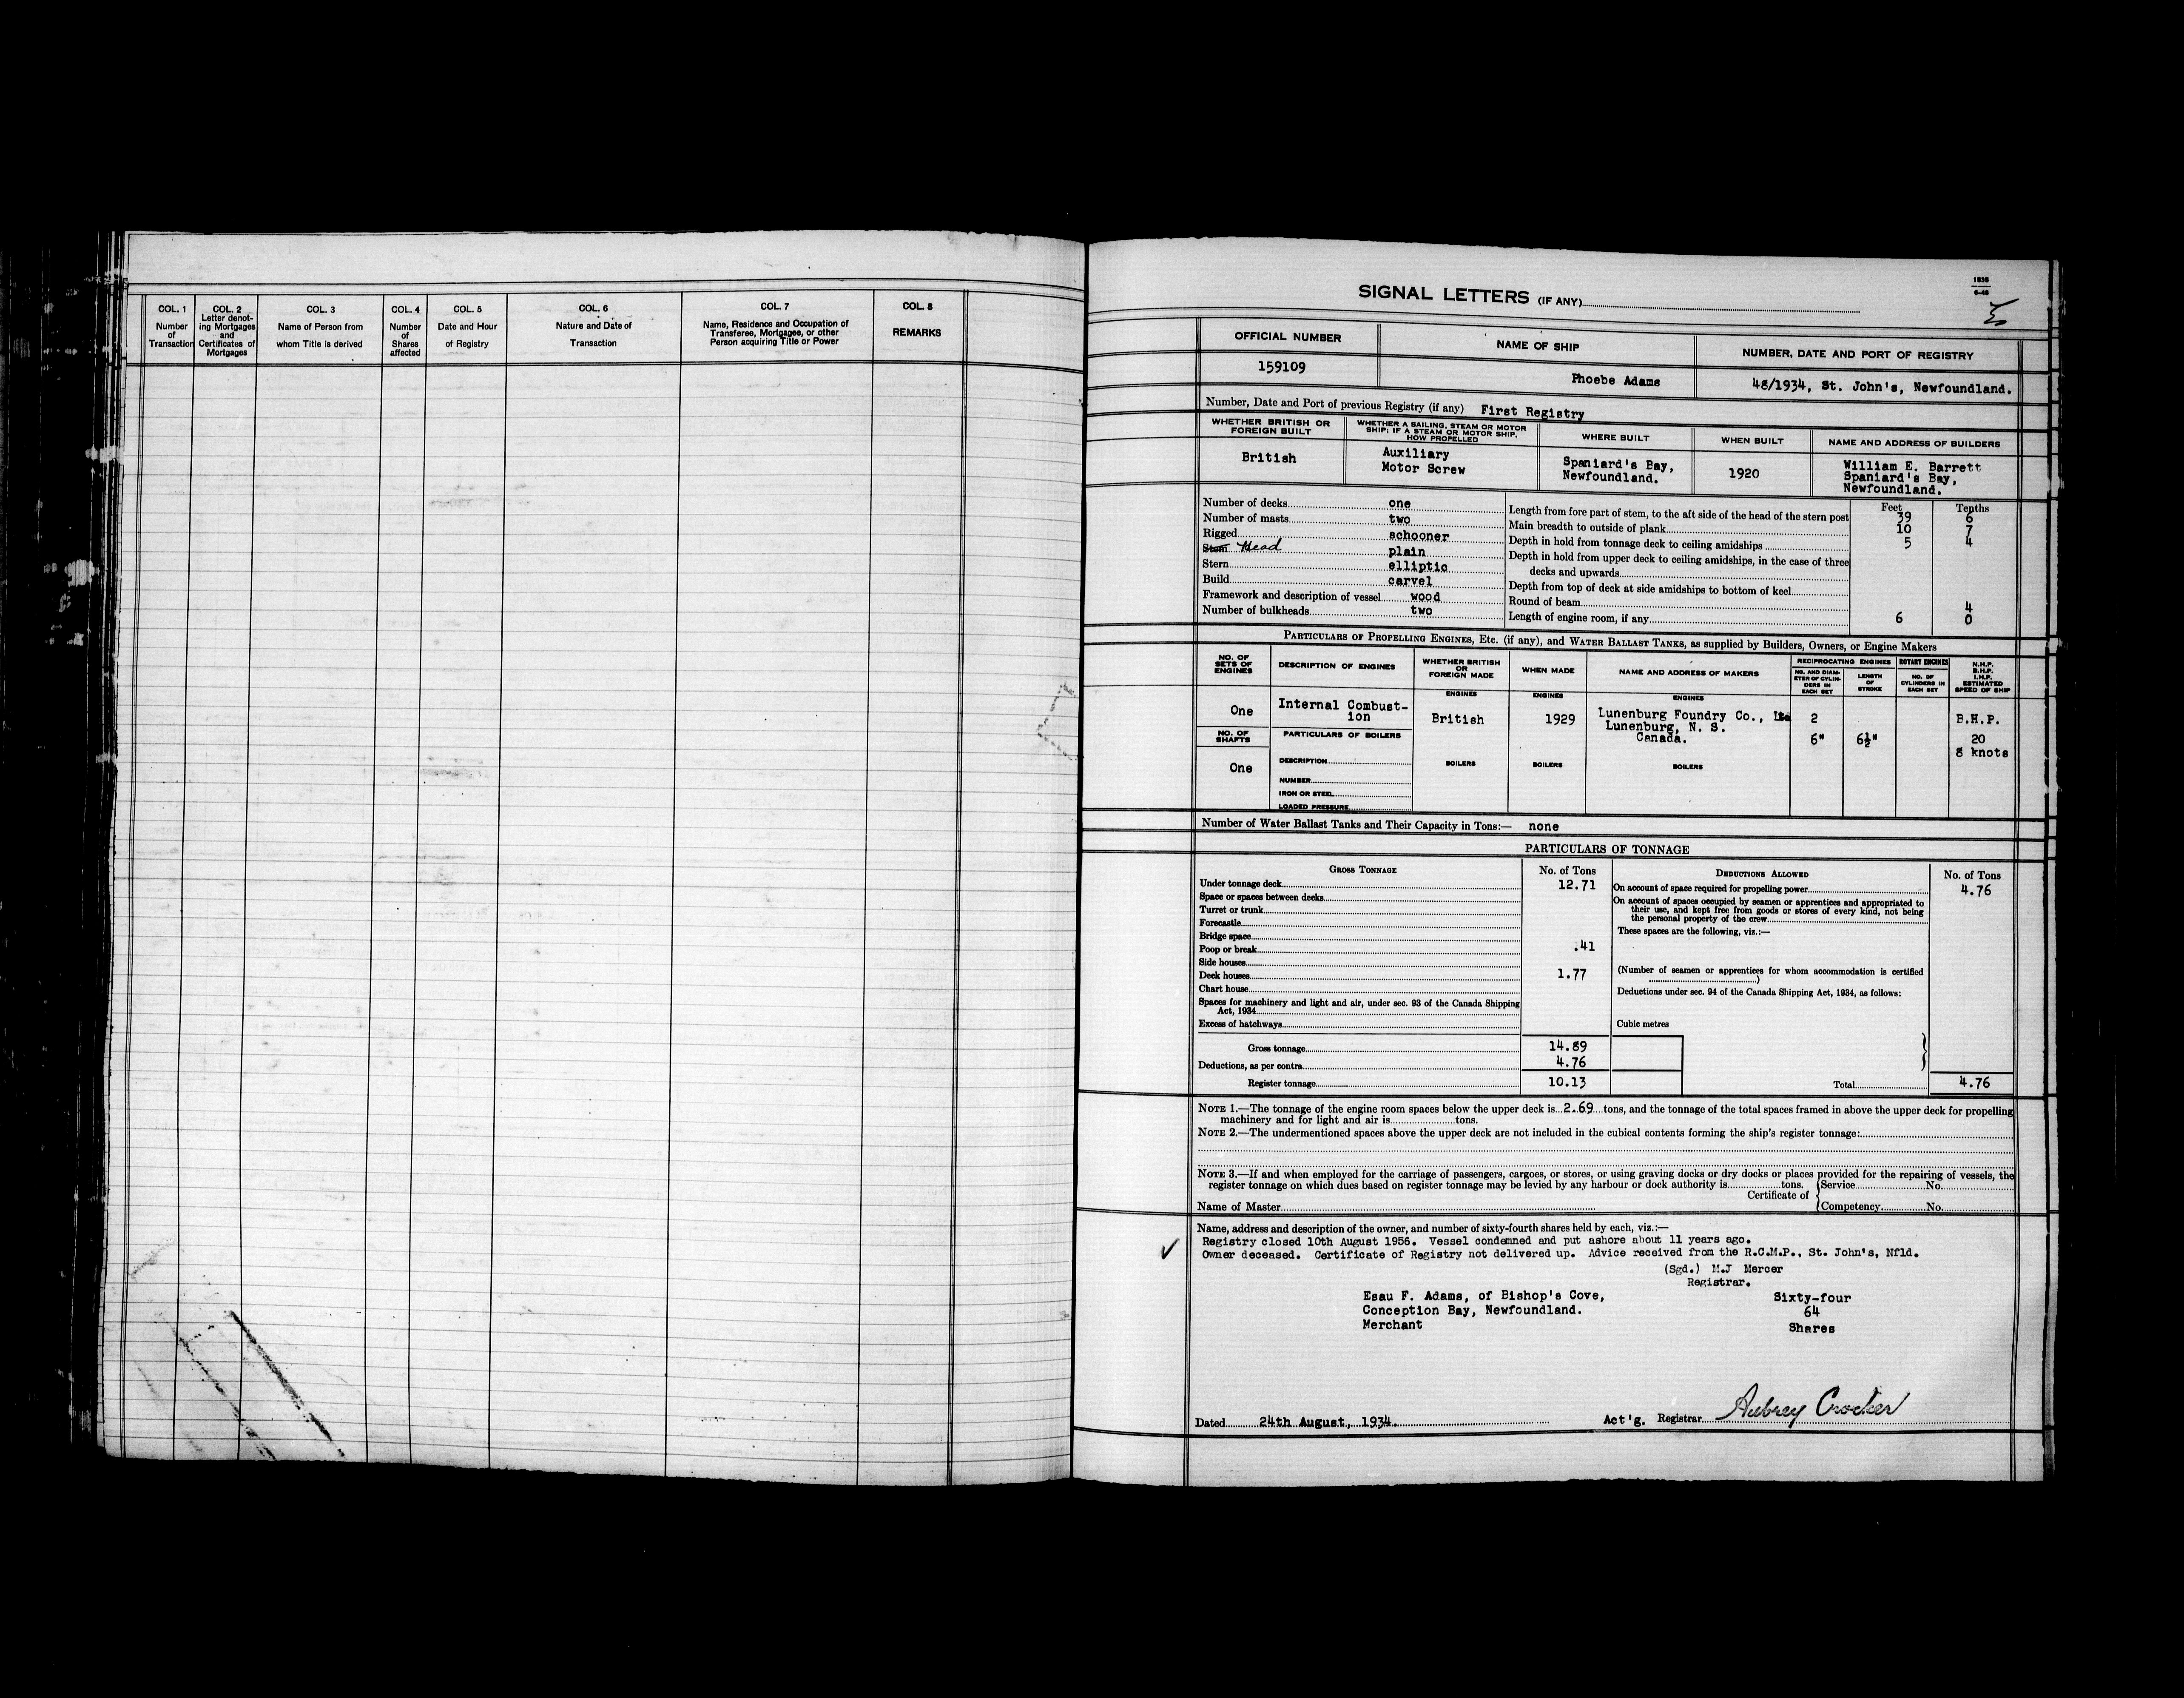 COL. 1
Number
of
Transaction
COL. 2
Letter denot-
ing Mortgages
and
Certificates of
Mortgages
COL. 3
Name of Person from
whom Title is derived
COL. 4
Number
of
Shares
affected
COL. 5
Date and Hour
of Registry
COL. 6
Nature and Date of
Transaction
COL. 7
Name, Residence and Occupation of
Transferee, Mortgagee, or other
Person acquiring Title or Power
COL. 8
REMARKS
SIGNAL LETTERS (IF ANY)
OFFICIAL NUMBER
159109
NAME OF SHIP
Phoebe Adams
NUMBER, DATE AND PORT OF REGISTRY
48/1934, St. John's, Newfoundland.
Number, Date and Port of previous Registry (if any) First Registry
WHETHER BRITISH OR
FOREIGN BUILT
British
WHETHER A SAILING, STEAM OR MOTOR
SHIP; IF A STEAM OR MOTOR SHIP,
HOW PROPELLED
Auxiliary
Motor Screw
WHERE BUILT
Spaniard's Bay,
Newfoundland.
WHEN BUILT
1920
NAME AND ADDRESS OF BUILDERS
William E. Barrett
Spaniard's Bay,
Newfoundland.
Number of decks one
Number of masts two
Rigged schooner
Stem Head plain
Stern elliptic
Build carvel
Framework and description of vessel wood
Number of bulkheads two
Feet Tenths
Length from fore part of stem, to the aft side of the head of the stern post 39 6
Main breadth to outside of plank 10 7
Depth in hold from tonnage deck to ceiling amidships 5 4
Depth in hold from upper deck to ceiling amidships, in the case of three
decks and upwards
Depth from top of deck at side amidships to bottom of keel
Round of beam 4
Length of engine room, if any 6 0
PARTICULARS OF PROPELLING ENGINES, ETC. (if any), and WATER BALLAST TANKS, as supplied by Builders, Owners, or Engine Makers
NO. OF
SETS OF
ENGINES
One
NO. OF
SHAFTS
One
DESCRIPTION OF ENGINES
Internal Combust-
ion
PARTICULARS OF BOILERS
DESCRIPTION
NUMBER
IRON OR STEEL
LOADED PRESSURE
WHETHER BRITISH
OR
FOREIGN MADE
ENGINES
British
BOILERS
WHEN MADE
ENGINES
1929
BOILERS
NAME AND ADDRESS OF MAKERS
ENGINES
Lunenburg Foundry Co., Ltd
Lunenburg, N. S.
Canada.
BOILERS
RECIPROCATING ENGINES
NO. AND DIAM-
ETER OF CYLIN-
DERS IN
EACH SET
2
6"
LENGTH
OF
STROKE
6½"
ROTARY ENGINES
NO. OF
CYLINDERS IN
EACH SET
N.H.P.
B.H.P.
I.H.P.
ESTIMATED
SPEED OF SHIP
B.H.P.
20
8 knots
Number of Water Ballast Tanks and Their Capacity in Tons:— none
PARTICULARS OF TONNAGE
GROSS TONNAGE No. of Tons
Under tonnage deck 12.71
Space or spaces between decks
Turret or trunk
Forecastle
Bridge space
Poop or break .41
Side houses
Deck houses 1.77
Chart house
Spaces for machinery and light and air, under sec. 93 of the Canada Shipping
Act, 1934
Excess of hatchways
Gross tonnage 14.89
Deductions, as per contra 4.76
Register tonnage 10.13
DEDUCTIONS ALLOWED No. of Tons
On account of space required for propelling power 4.76
On account of spaces occupied by seamen or apprentices and appropriated to
their use, and kept free from goods or stores of every kind, not being
the personal property of the crew
These spaces are the following, viz.:—
(Number of seamen or apprentices for whom accommodation is certified
)
Deductions under sec. 94 of the Canada Shipping Act, 1934, as follows:
Cubic metres
Total 4.76
NOTE 1.—The tonnage of the engine room spaces below the upper deck is 2.69 tons, and the tonnage of the total spaces framed in above the upper deck for propelling
machinery and for light and air is tons.
NOTE 2.—The undermentioned spaces above the upper deck are not included in the cubical contents forming the ship's register tonnage:
NOTE 3.—If and when employed for the carriage of passengers, cargoes, or stores, or using graving docks or dry docks or places provided for the repairing of vessels, the
register tonnage on which dues based on register tonnage may be levied by any harbour or dock authority is tons.
Certificate of
Service No.
Competency No.
Name of Master
Name, address and description of the owner, and number of sixty-fourth shares held by each, viz.:—
Registry closed 10th August 1956. Vessel condemned and put ashore about 11 years ago.
Owner deceased. Certificate of Registry not delivered up. Advice received from the R.C.M.P., St. John's, Nfld.
(Sgd.) M.J Mercer
Registrar.
Esau F. Adams, of Bishop's Cove, Sixty-four
Conception Bay, Newfoundland. 64
Merchant Shares
Dated 24th August, 1934. Act'g. Registrar Aubrey Crocker